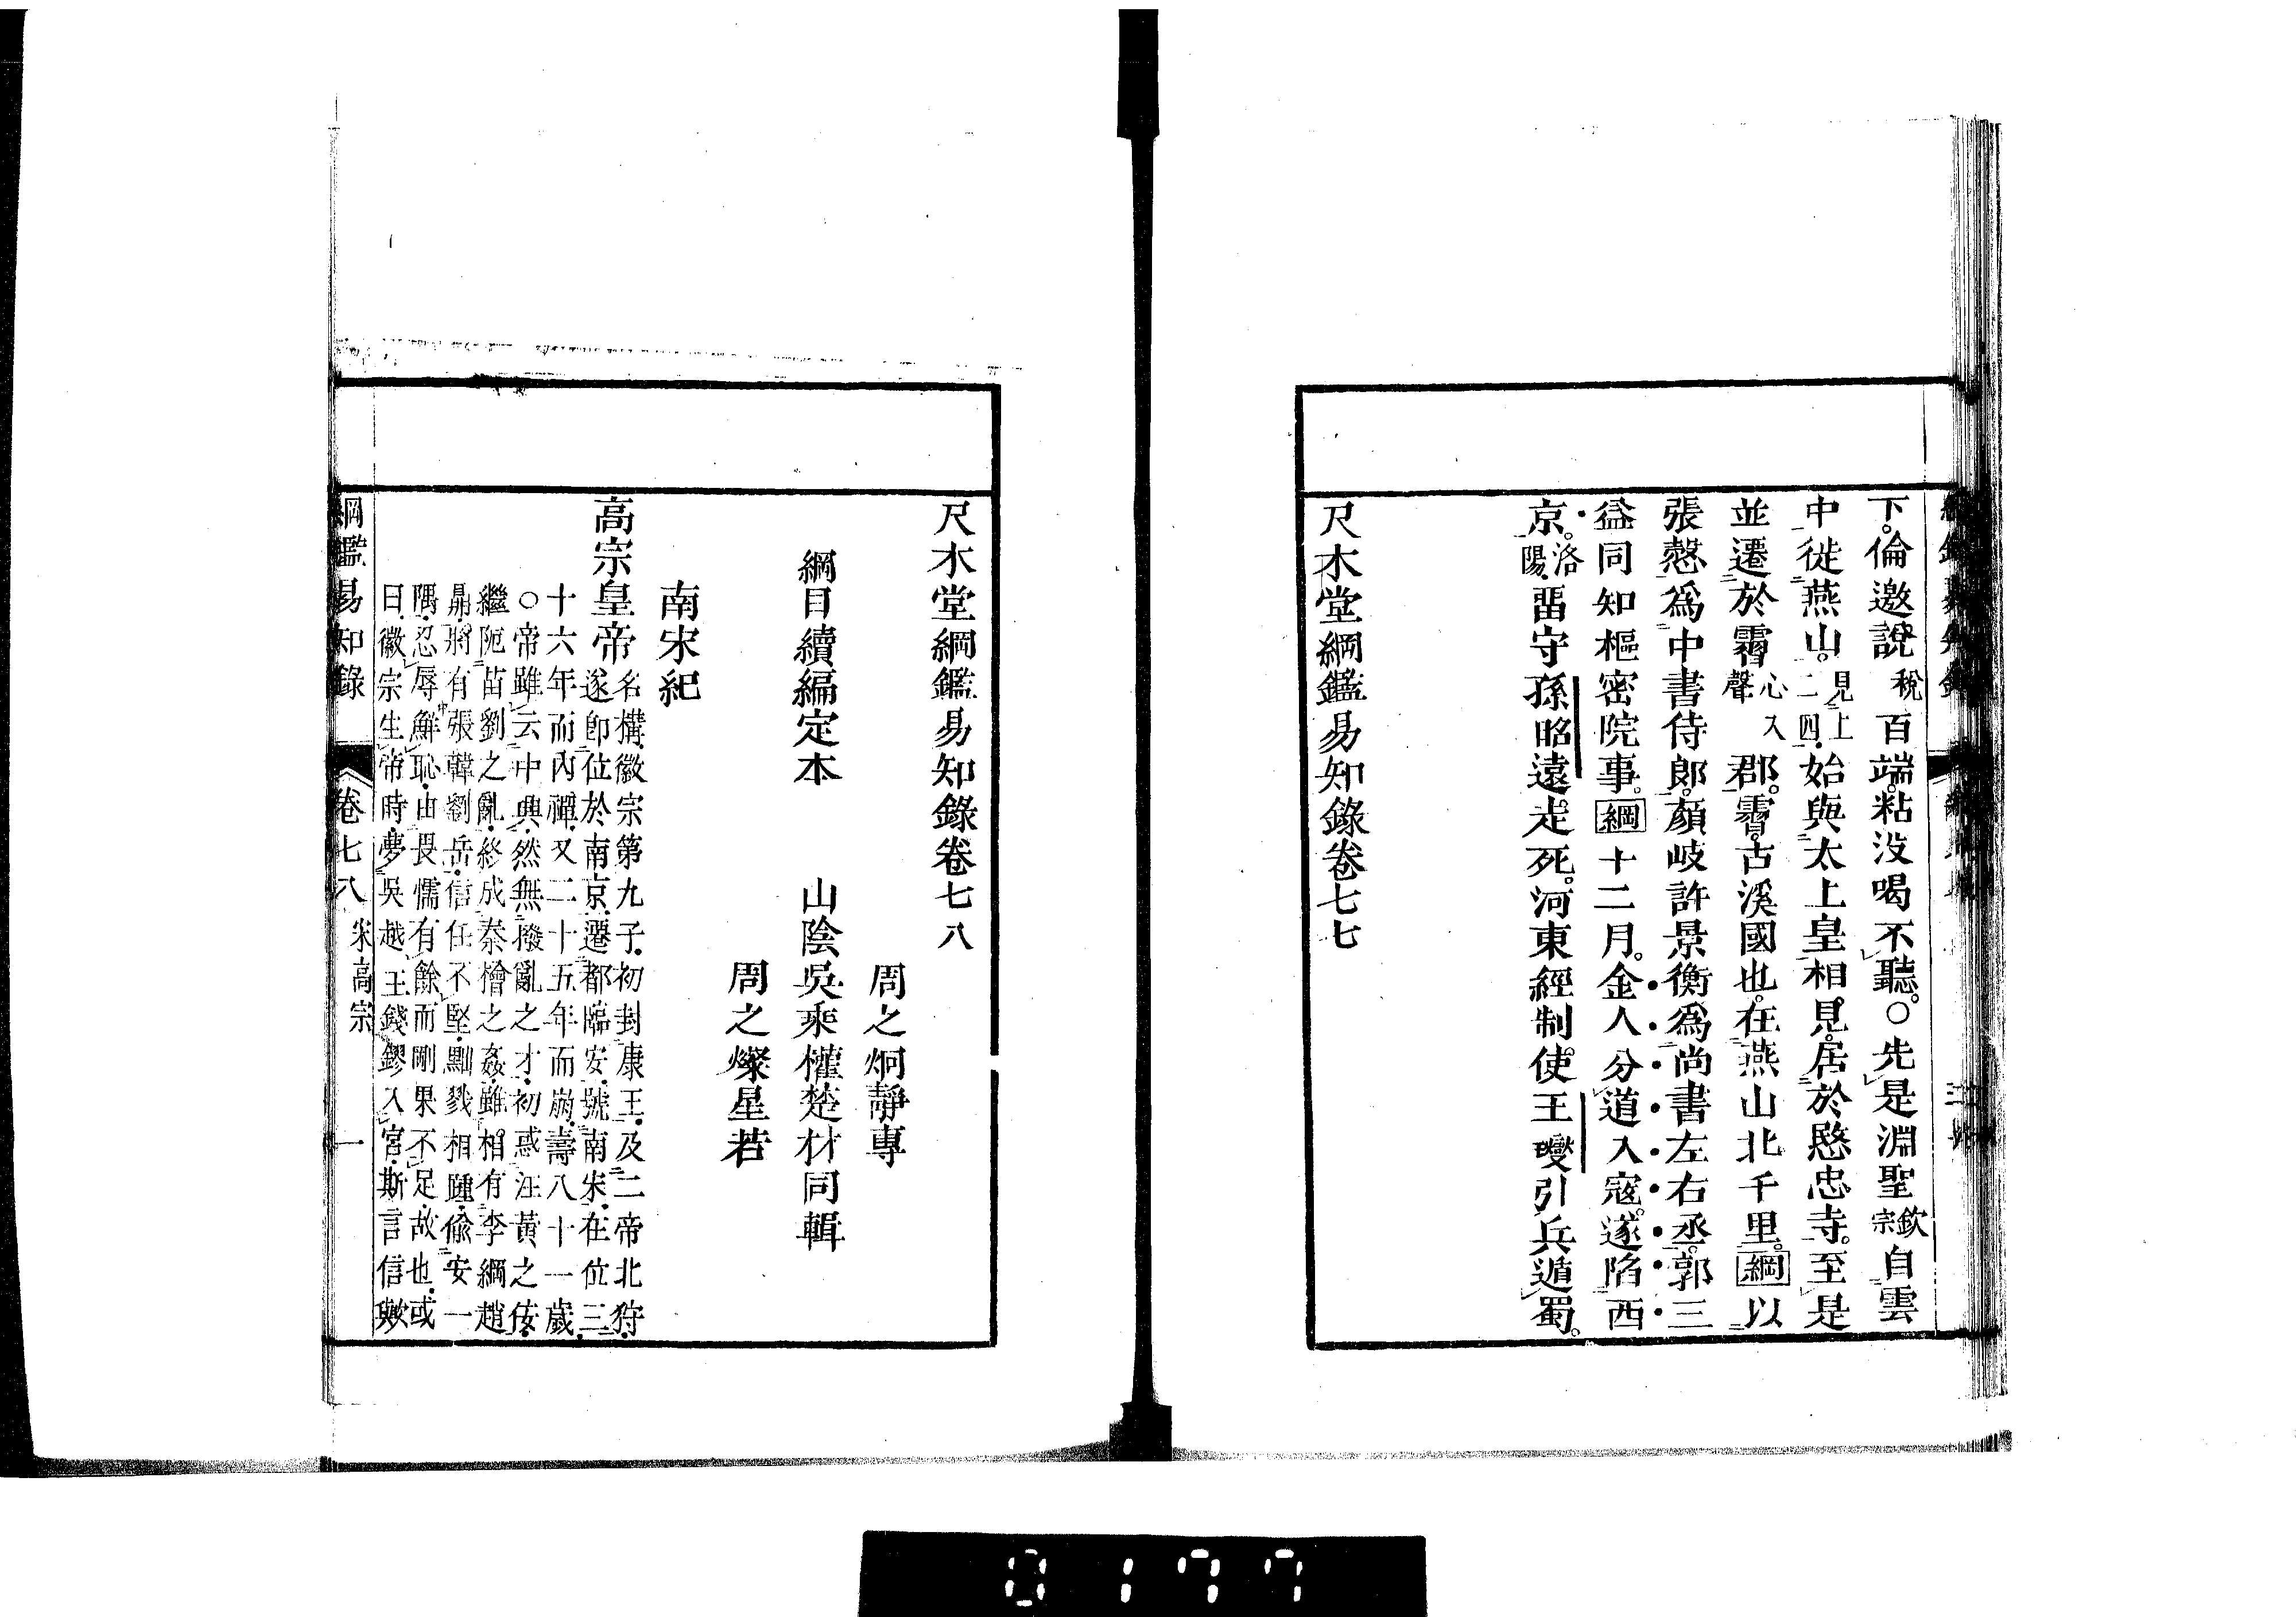 下。倫邀說稅百端。粘没喝不聽。○先是淵聖欽宗自雲
中徙燕山。見上二四。始與太上皇相見。居於愍忠寺。至是
並遷於霫心入聲郡。霫。古溪國也。在燕山北千里。綱以
張慤爲中書侍郎。顏岐許景衡爲尚書左右丞。郭三
益同知樞密院事。綱十二月。金人分道入寇。遂陷西
京。洛陽。畱守孫昭遠走死。河東經制使王𤫉引兵遁蜀。
尺木堂綱鑑易知錄卷七七
尺木堂綱鑑易知錄卷七八
周之炯靜專
綱目續編定本　山陰吳乘權楚材同輯
周之燦星若
南宋紀
高宗皇帝名構。徽宗第九子。初封康王。及二帝北狩。
遂卽位於南京。遷都臨安。號南宋。在位三
十六年而內禪。又二十五年而崩。壽八十一歲。
○帝雖云中興。然無撥亂之才。初惑汪黃之佞。
繼阨苗劉之亂。終成秦檜之姦。雖相有李綱趙
鼎。將有張韓劉岳。信任不堅。黜戮相踵。偸安一
隅。忍辱鮮恥。由畏懦有餘而剛果不足故也。或
曰。徽宗生帝時。夢吳越王錢鏐入宮。斯言信歟
綱鑑易知錄　卷七八　宋高宗　一
0177